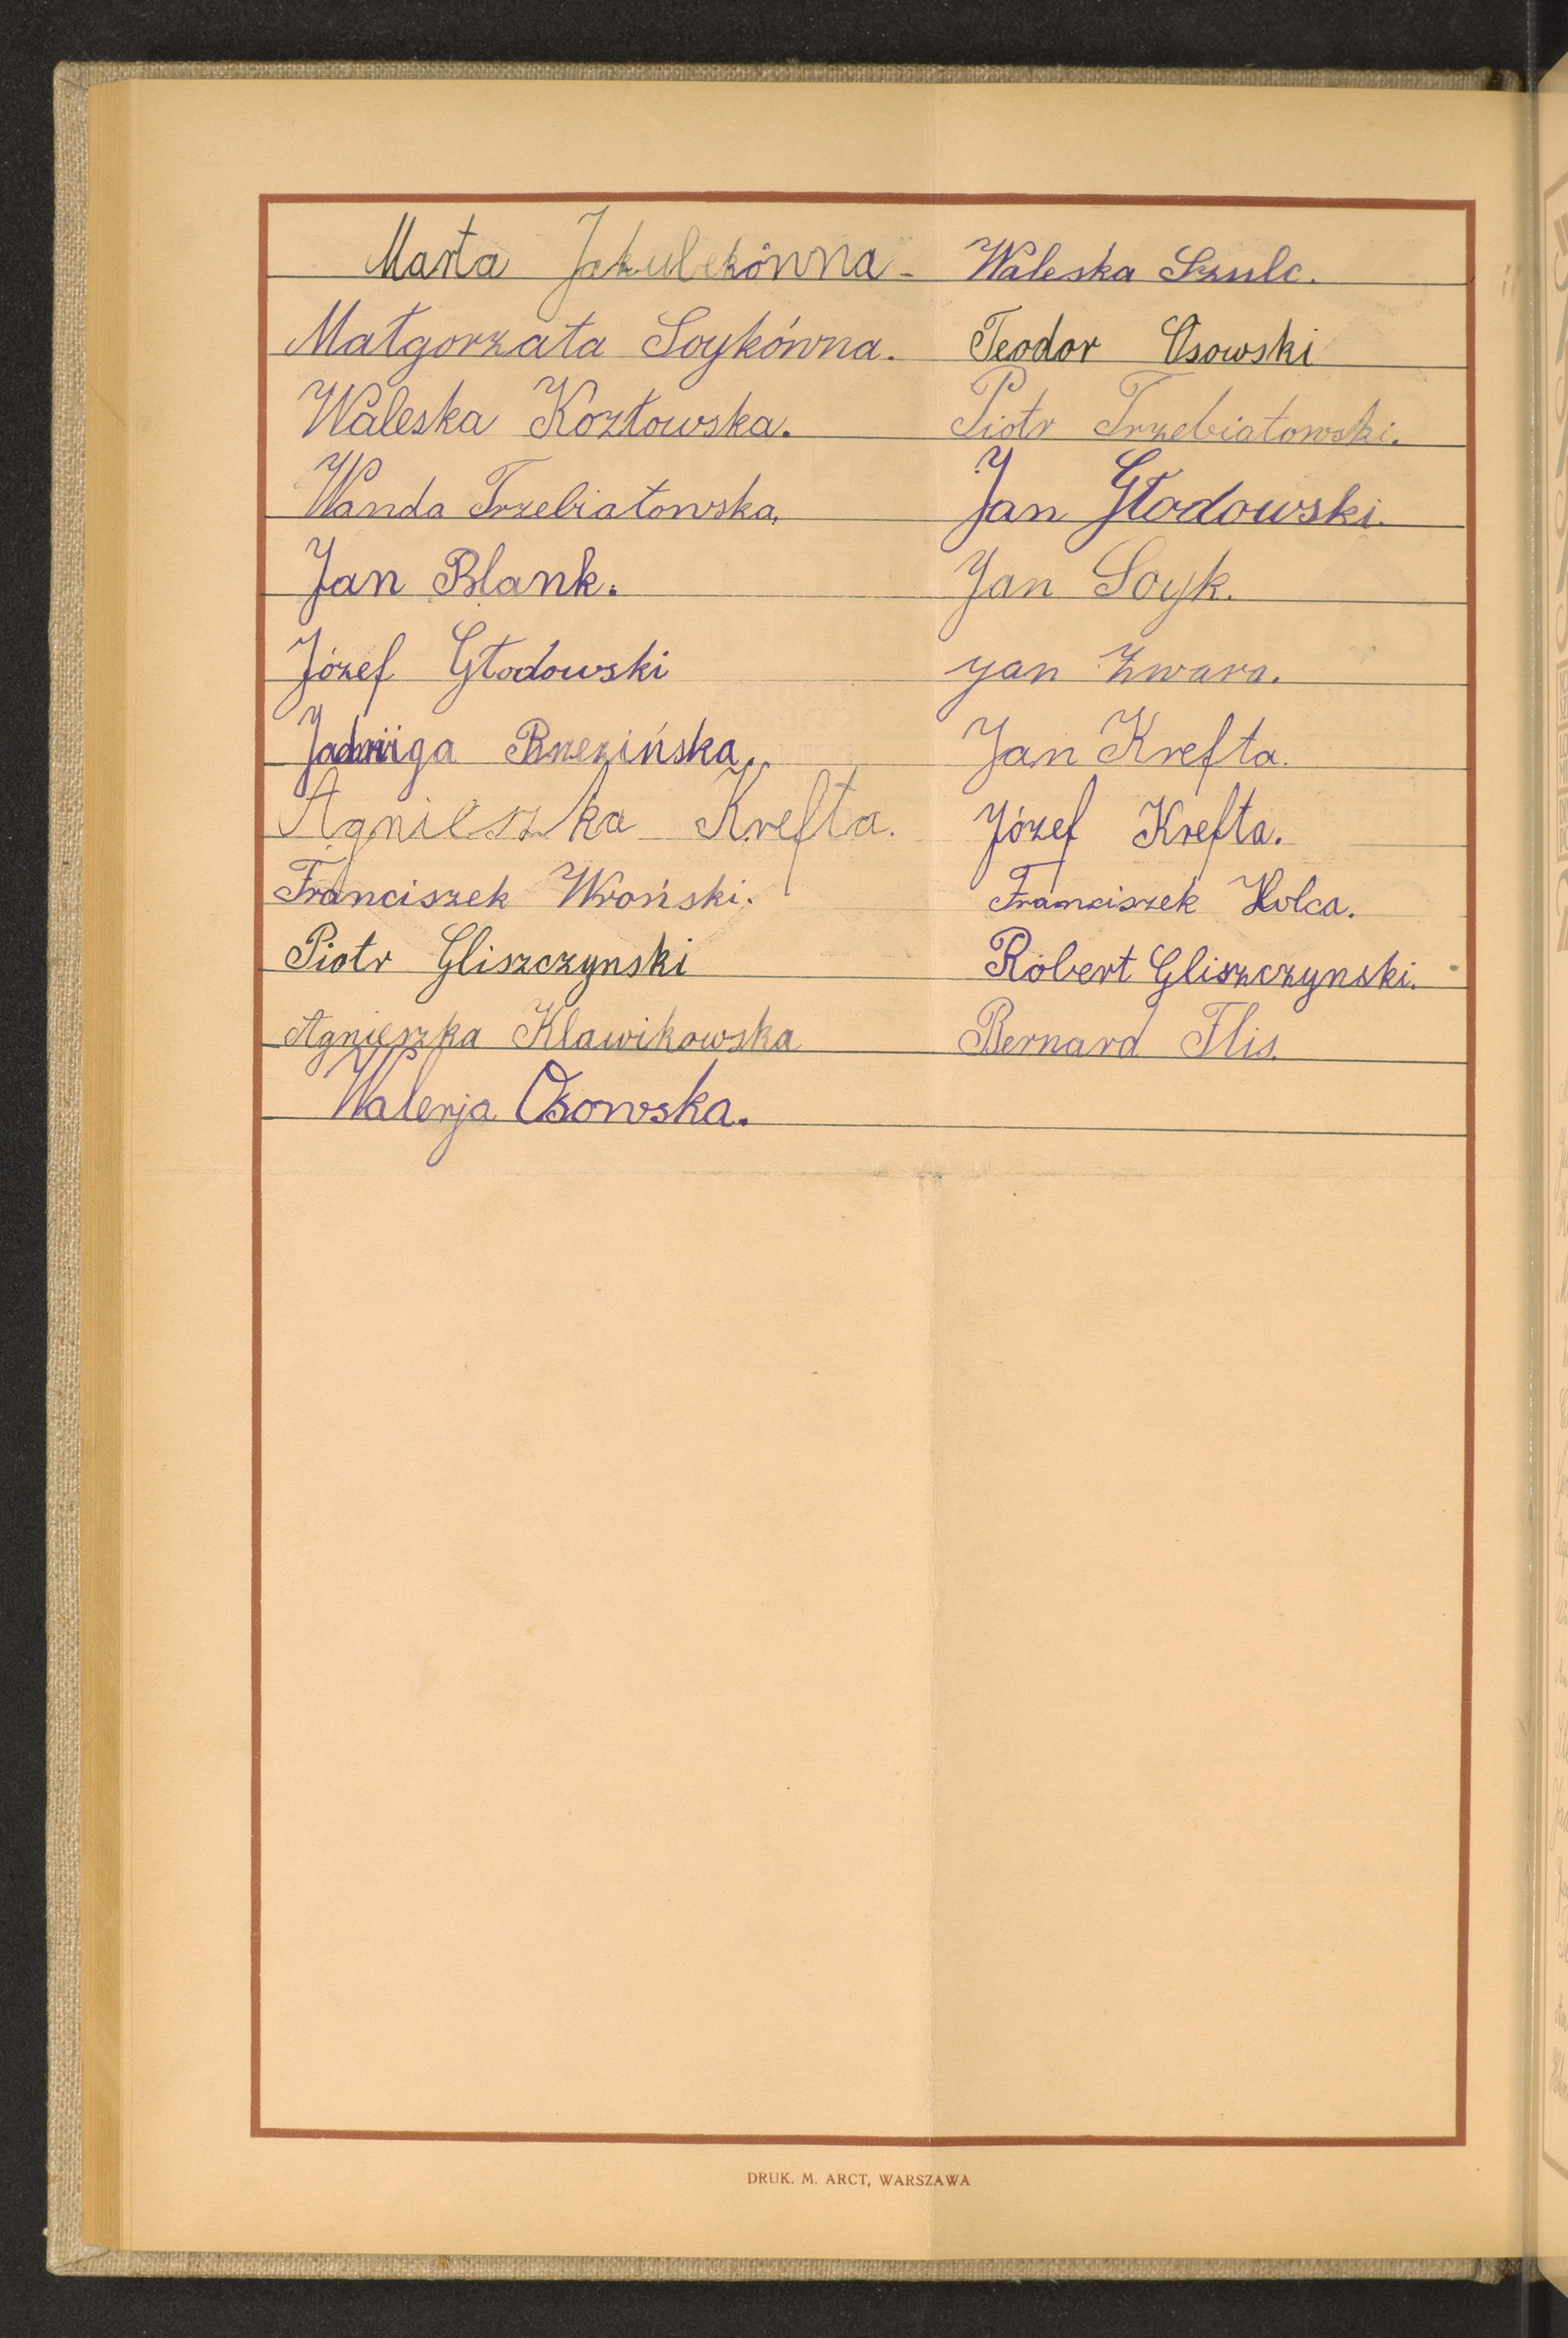 Marta Jakubekówna - Waleska Szulc.
Małgorzata Soykówna. Teodor Osowski
Waleska Kozłowska. Piotr Trzebiatowski.
Wanda Trzebiatowska, Jan Głodowski.
Jan Blank. Jan Soyk.
Józef Głodowski Jan Zwara.
Jadwiga Brzezińska. Jan Krefta.
Agnieszka Krefta. Józef Krefta.
Franciszek Wroński. Franciszek Holca.
Piotr Gliszczynski Robert Gliszczynski.
Agnieszka Klawikowska Bernard Flis.
Walerja Osowska.
DRUK. M. ARCT, WARSZAWA